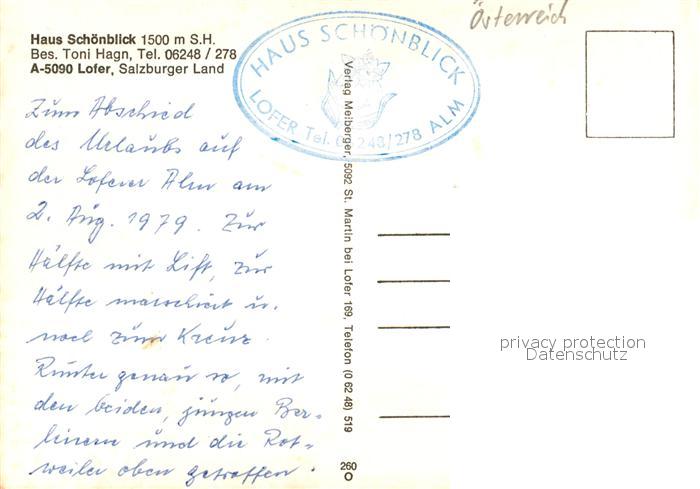 Österreich
Haus Schönblick 1500 m S.H.
Bes. Toni Hagn, Tel. 06248 / 278
A-5090 Lofer, Salzburger Land
HAUS SCHÖNBLICK
LOFER Tel. 06248/278 ALM
Zum Abschied
des Urlaubs auf
der Loferer Alm am
2. Aug. 1979. Zur
Hälfte mit Lift, zur
Hälfte marschiert u.
noch zum Kreuz.
Runter genau so, mit
den beiden, jungen Ber-
linern und die Rot-
weiler oben getroffen.
Verlag Meiberger, 5092 St. Martin bei Lofer 169, Telefon (0 62 48) 519
260
O
privacy protection
Datenschutz